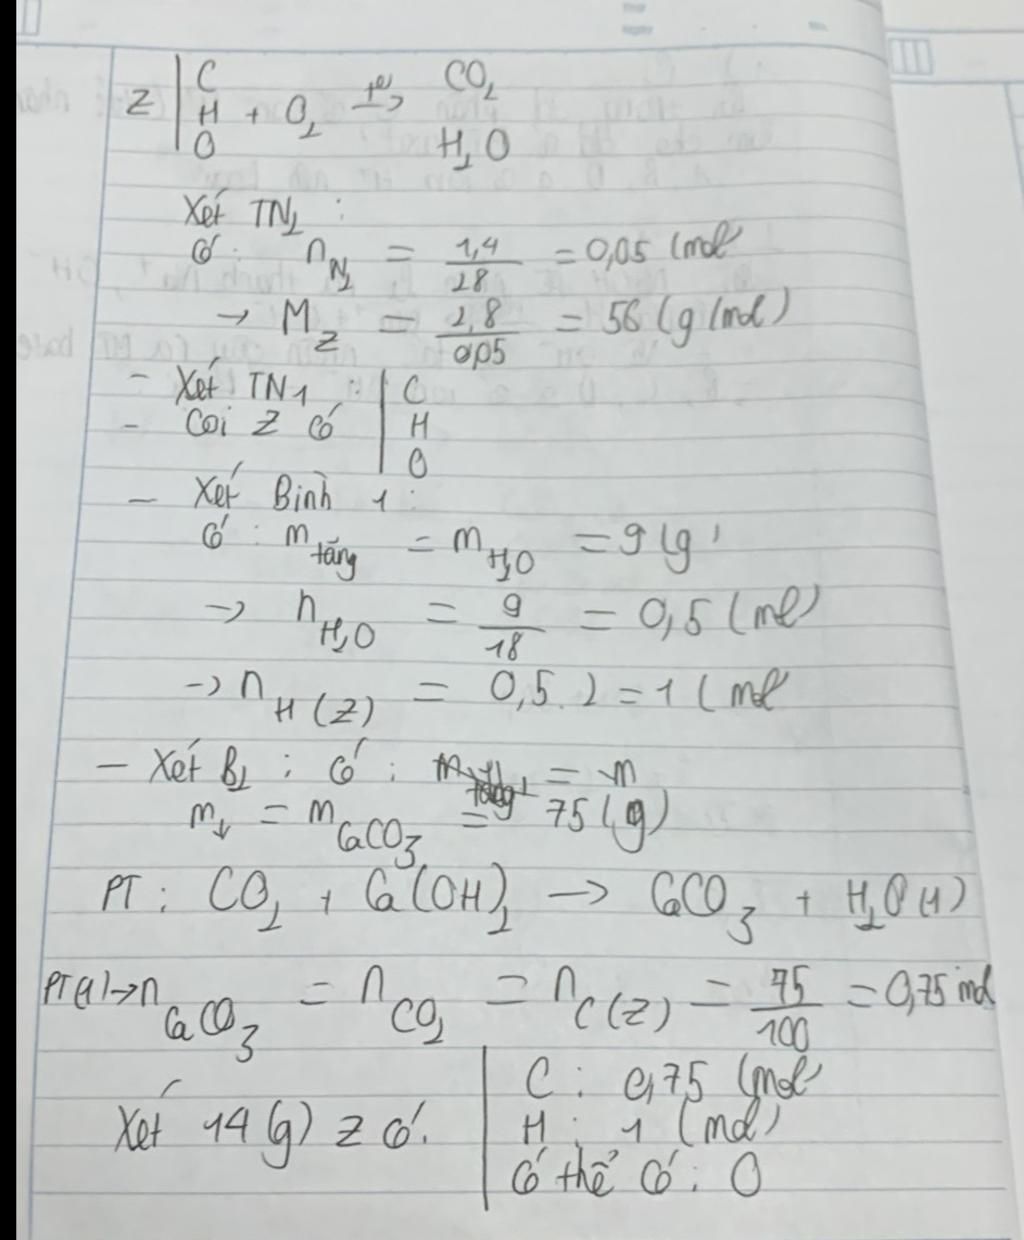 Z | C H O + O₂ t° → CO₂ H₂O
Xét TN₂ :
Có : n N₂ = 1,4/28 = 0,05 (mol
→ M Z = 2,8/0,05 = 56 (g/mol)
- Xét TN1 :
- Coi Z có | C H O
- Xét Bình 1 :
Có : m tăng = m H₂O = 9 (g)
→ n H₂O = 9/18 = 0,5 (mol)
→ n H (Z) = 0,5 . 2 = 1 (mol
- Xét B₂ : Có : = m
m↓ = m CaCO₃ = 75 (g)
PT : CO₂ + Ca(OH)₂ → CaCO₃ + H₂O (1)
PT(1) → n CaCO₃ = n CO₂ = n C (Z) = 75/100 = 0,75 mol
Xét 14 (g) Z có. | C : 0,75 (mol
H : 1 (mol)
Có thể có : O